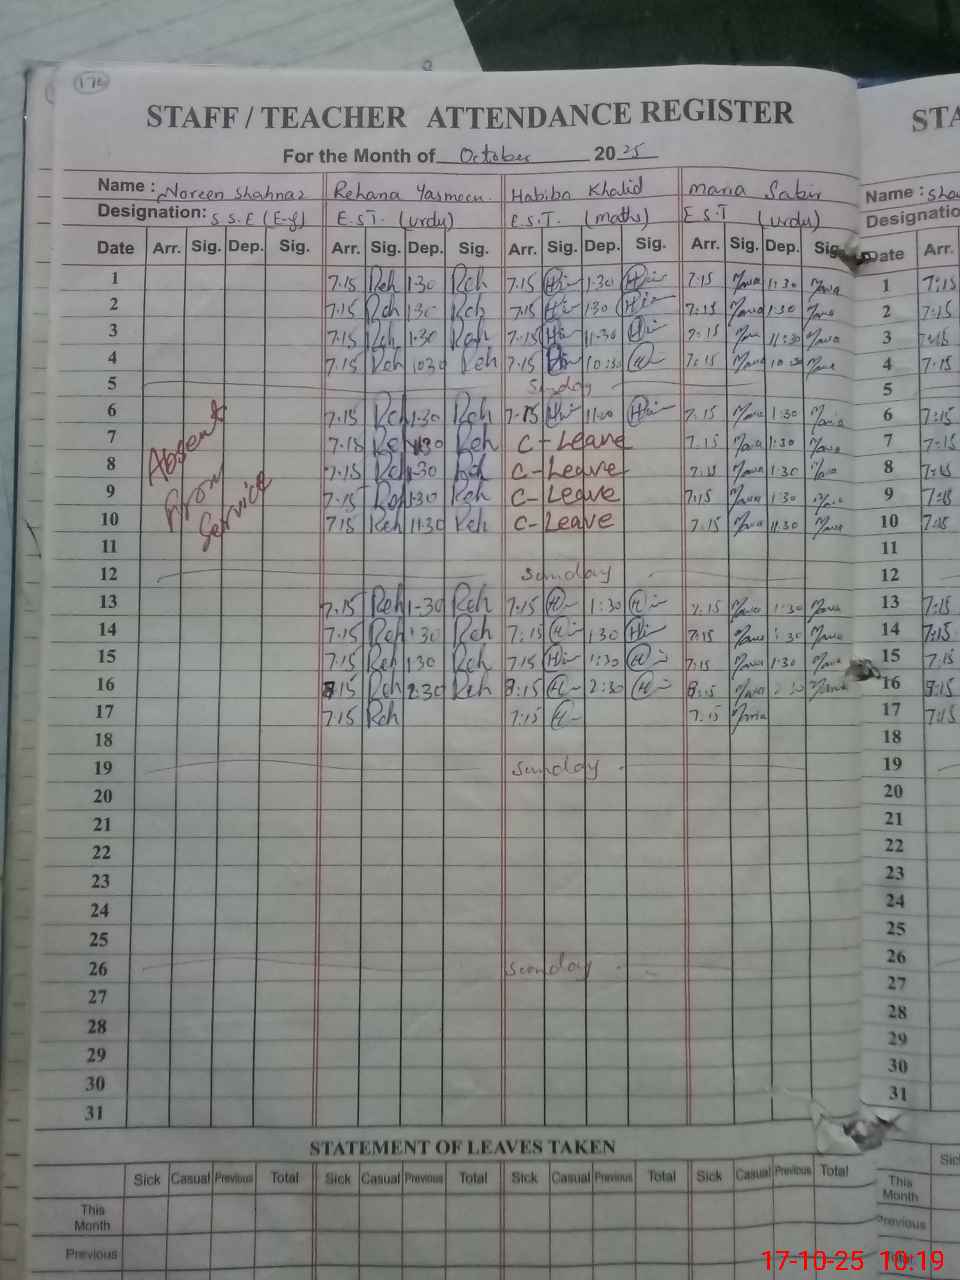 176
STAFF / TEACHER ATTENDANCE REGISTER STA
For the Month of October 2025
Name : Noreen Shahnaz Rehana Yasmeen. Habiba Khalid Maria Sabir Name :
Designation: S.S.E (E-g) E.S.T. (urdu) E.S.T. (maths) E.S.T (urdu) Designatio
Date Arr. Sig. Dep. Sig. Arr. Sig. Dep. Sig. Arr. Sig. Dep. Sig. Arr. Sig. Dep. Sig. Date Arr.
1 7.15 Reh 1.30 Reh 7.15 Hi 1.30 Hi 7.15 Maria 1:30 Maria 1 7:15
2 7.15 Reh 1.30 Reh 7.15 Hi 1.30 Hi 7.15 Maria 1.30 Maria 2 7:15
3 7.15 Reh 11.30 Reh 7.15 Hi 11.30 Hi 7.15 Maria 11:30 Maria 3 7:15
4 7.15 Reh 10.30 Reh 7.15 10:30 7:15 Maria 10.30 Maria 4 7.15
5 Sunday 5
6 7.15 Reh 1.30 Reh 7.15 Hi 11.00 Hi 7.15 Maria 1:30 Maria 6 7:15
7 7.15 Reh 1.30 Reh C-Leave 7.15 Maria 1:30 Maria 7 7:15
8 7.15 Reh 1.30 Reh C-Leave 7.15 Maria 1.30 Maria 8 7:15
9 7.15 Reh 1.30 Reh C-Leave 7.15 Maria 1.30 Maria 9 7:15
10 7.15 Reh 11.30 Reh C-Leave 7.15 Maria 11.30 Maria 10 7:15
Absent
from
Service
11 11
12 Sunday 12
13 7.15 Reh 1-30 Reh 7.15 H 1:30 Hi 7.15 Maria 1.30 Maria 13 7:15
14 7.15 Reh 1.30 Reh 7:15 H 1.30 Hi 7.15 Maria 1.30 Maria 14 7:15
15 7.15 Reh 1.30 Reh 7.15 Hi 1:30 Hi 7:15 Maria 1.30 Maria 15 7.15
16 8.15 Reh 2:30 Reh 8:15 H 2:30 Hi 8:15 Maria 2:30 Maria 16 8:15
17 7.15 Reh 7:15 H 7.15 Maria 17 7:15
18 18
19 Sunday 19
20 20
21 21
22 22
23 23
24 24
25 25
26 Sunday 26
27 27
28 28
29 29
30 30
31 31
STATEMENT OF LEAVES TAKEN
Sick Casual Previous Total Sick Casual Previous Total Sick Casual Previous Total Sick Casual Previous Total Sic
This Month This Month
Previous Previous
17-10-25 10:19